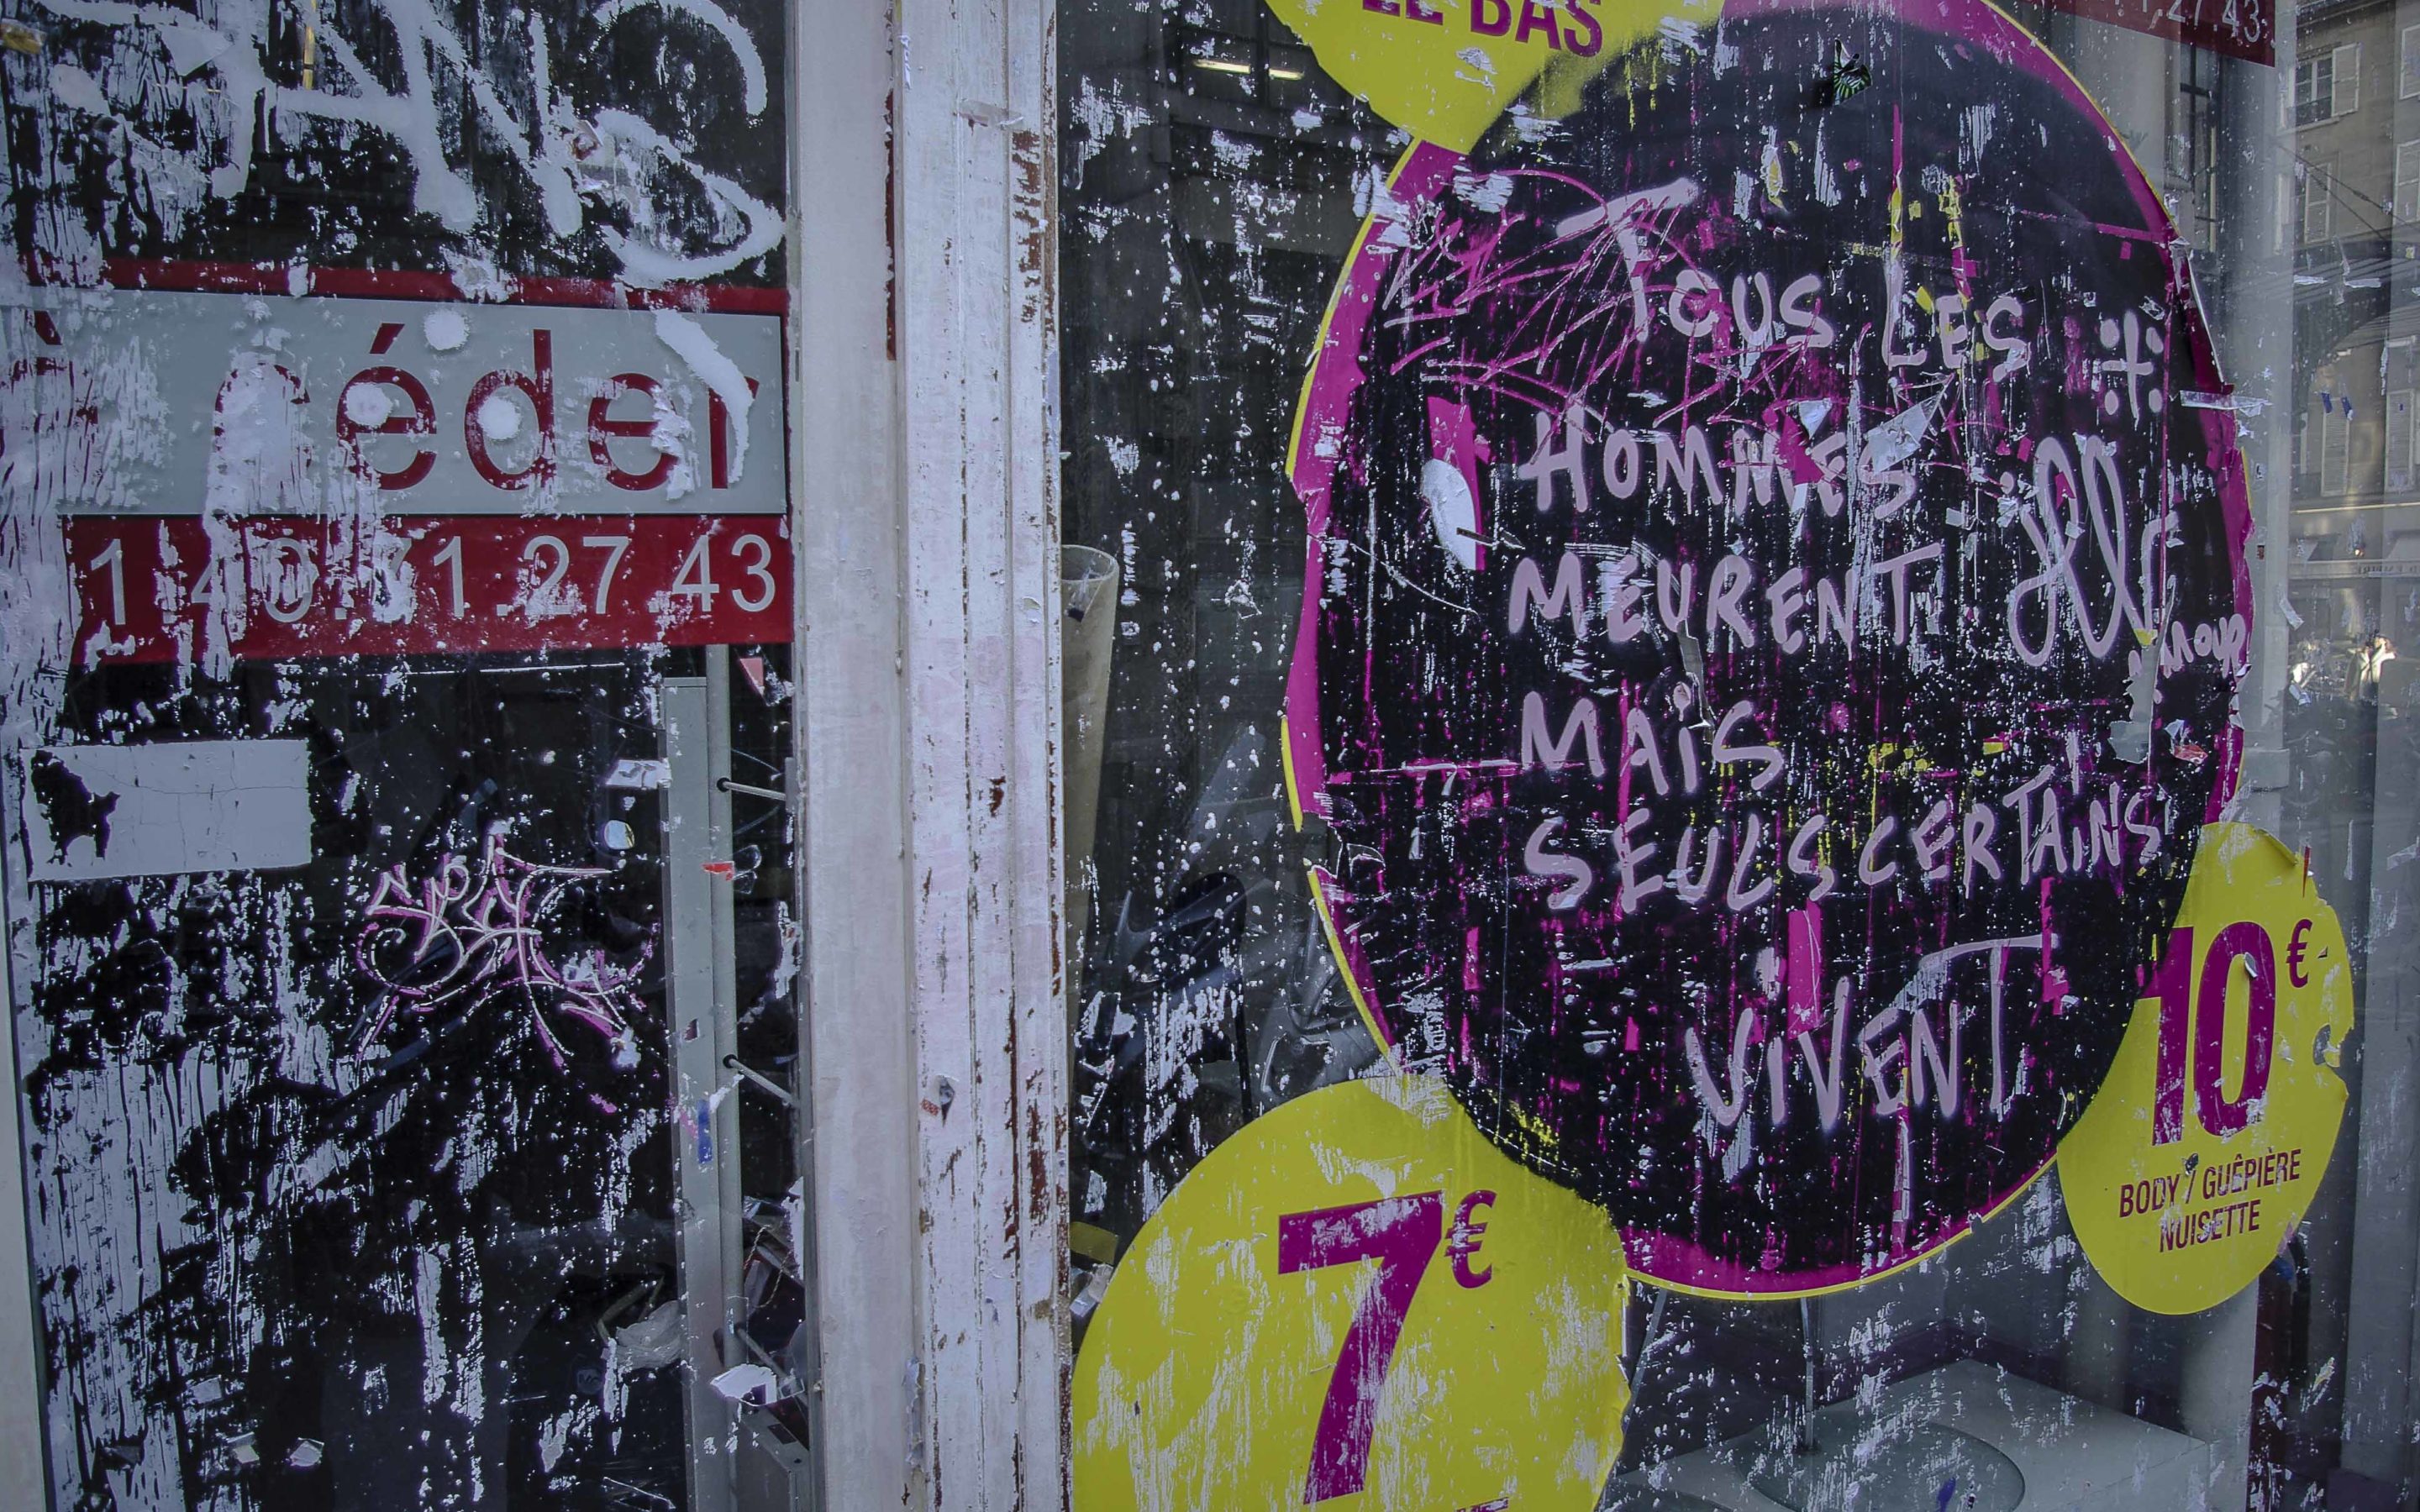 à céder
43
LE BAS
27.43
TOUS LES
HOMMES
MEURENT
MAiS
SEULS CERTAiNS
ViVENT
amour
10€
BODY / GUÊPIÈRE
NUISETTE
7€